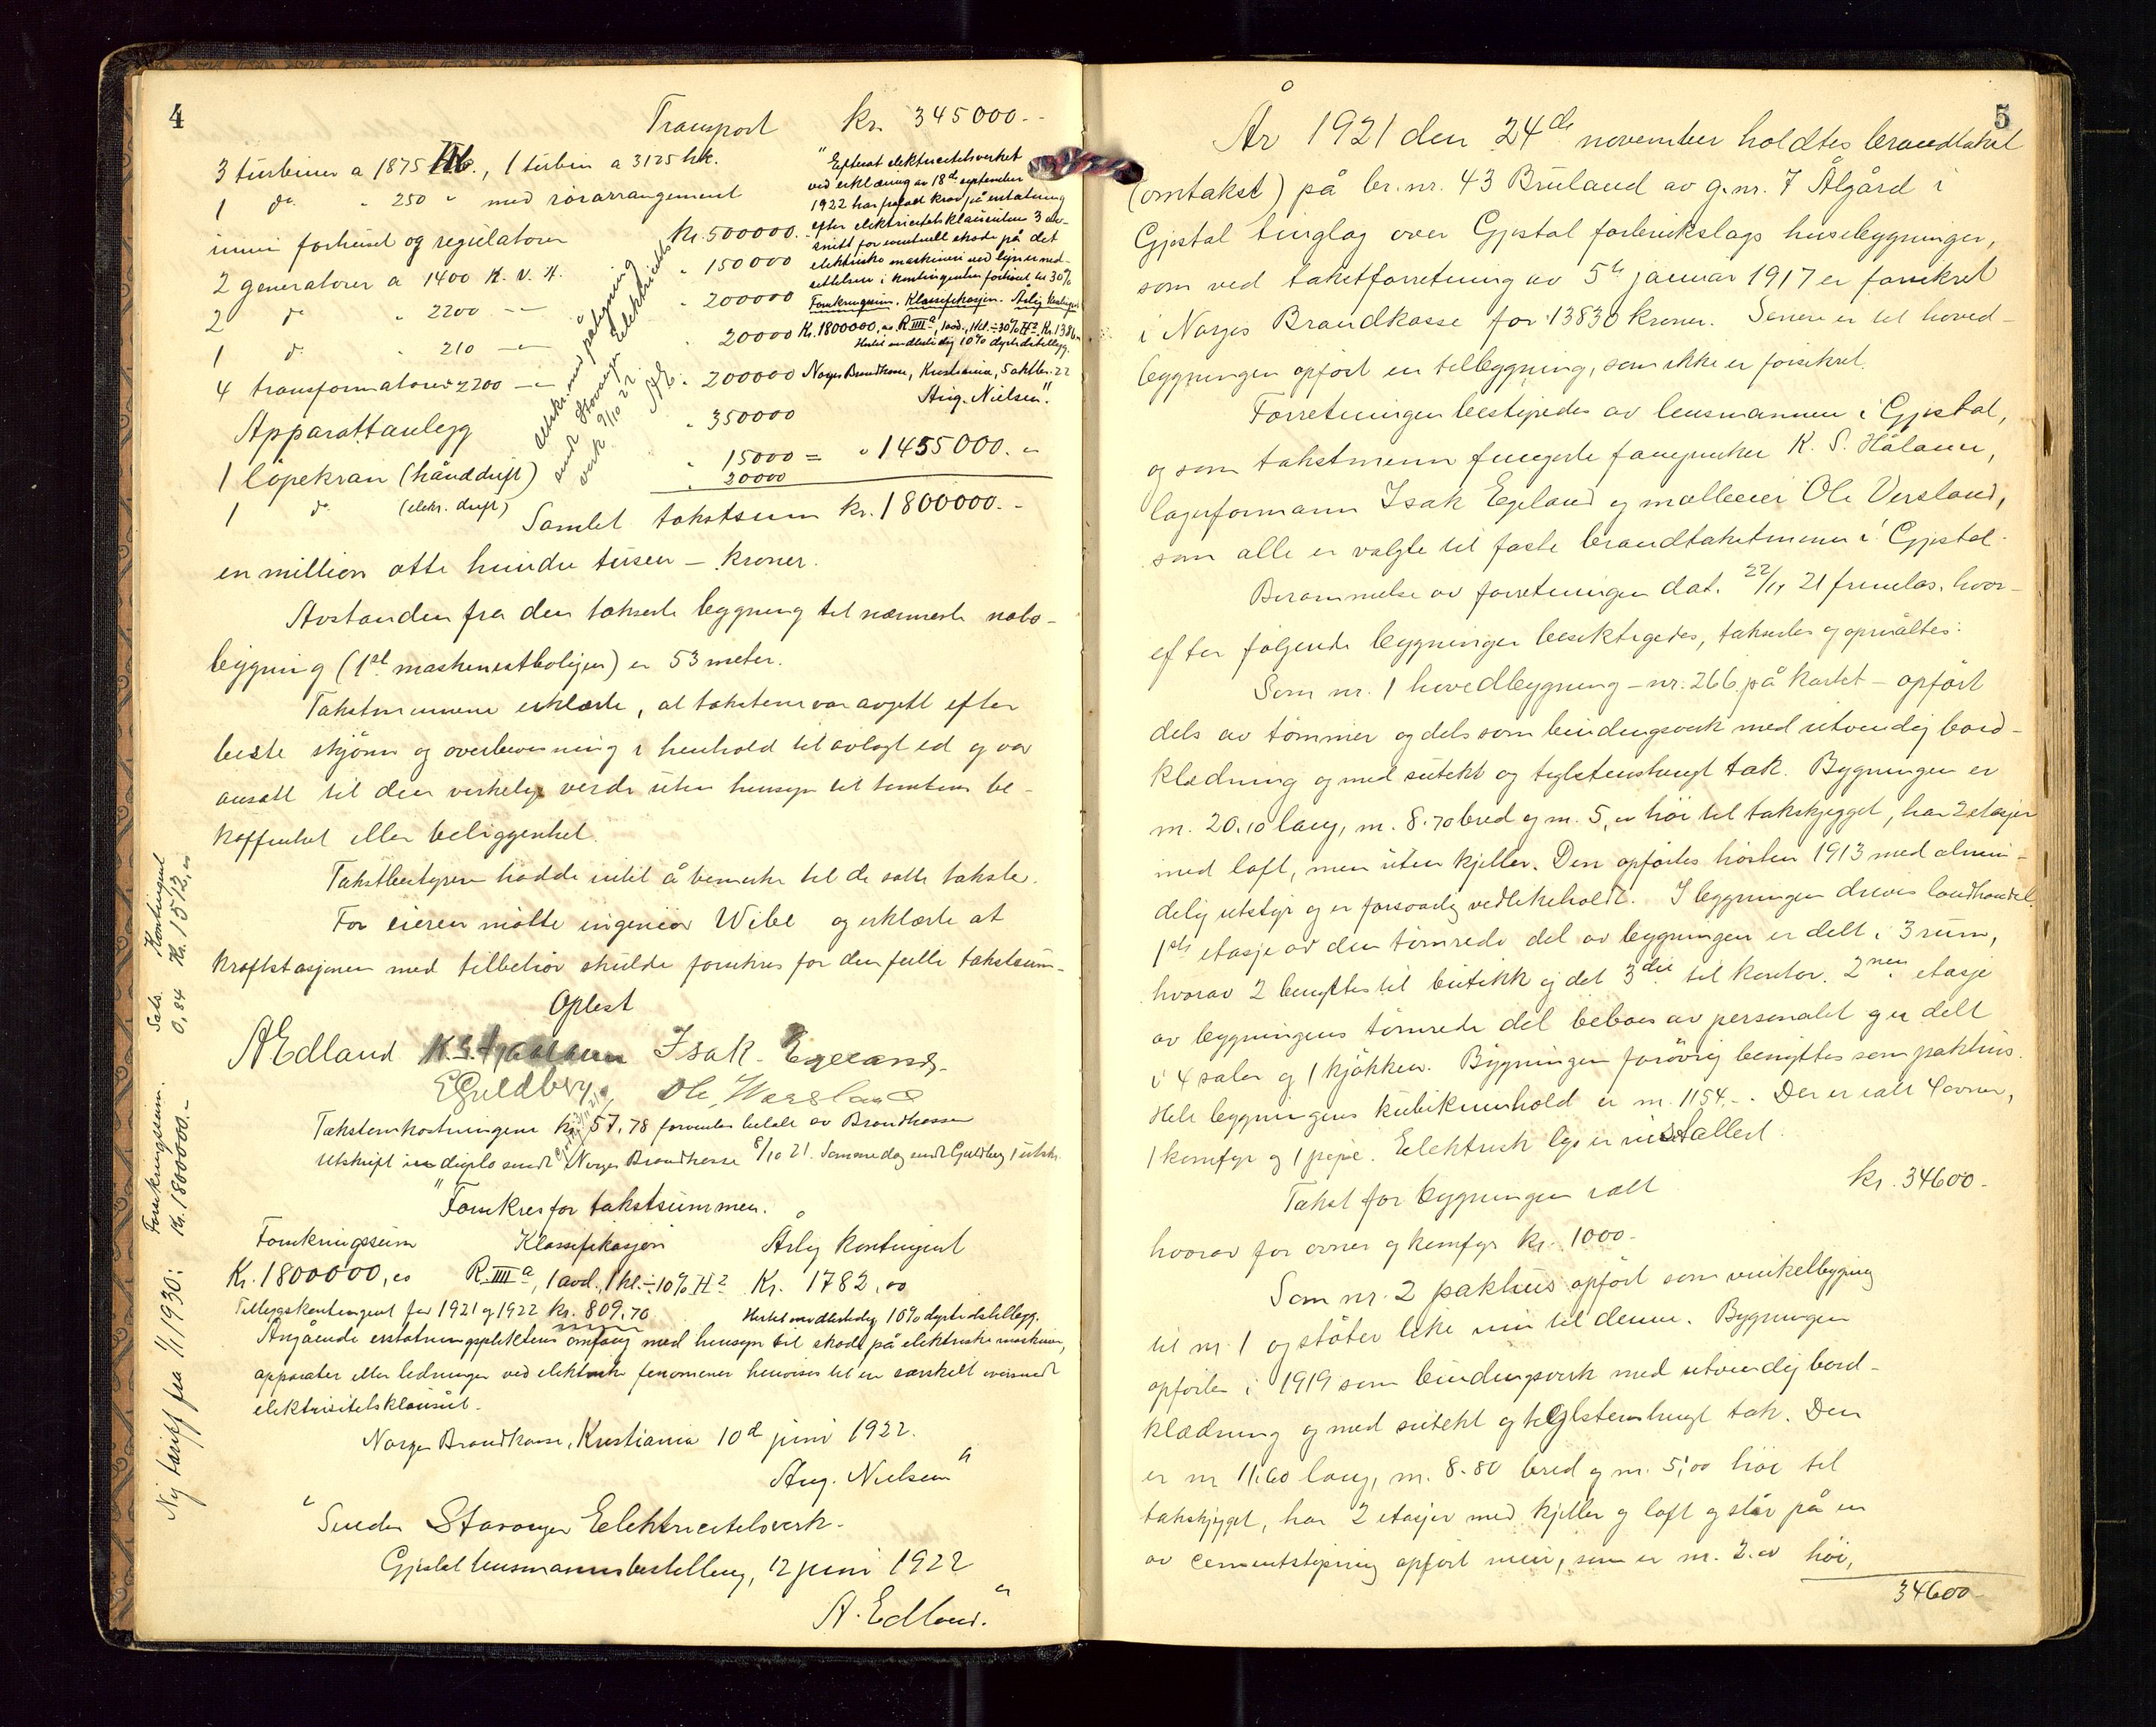 4
Transport kr. 345000.-
3 turbiner a 1875 Hk., 1 turbin a 3125 hk.
1 do. " 250 " med rörarrangement
inni forhuset og regulatorer kr. 500000.-
2 generatorer a 1400 K. V. A. " 150000
2 do " 2200 -"- " 200000
1 do " 210 -"- " 20000
4 transformatorer 2200 -"- " 200000
Apparattanlegg " 350000
1 löpekran (hånddrift) " 15000 = " 1455000.-
1 do (elektr. drift) " 20000
Samlet takstsum kr. 1800000.-
Utskr. med påtegning
sendt Stavanger Elektricitets
verk 9/10 22. AE.
"Efterat elektricitetsverket
ved erklæring av 18de september
1922 har frafalt krav på erstatning
efter elektricitetsklausulens 3 av-
snitt for eventuell skade på det
elektriske maskineri ved lyn er ned-
settelsen i kontingenten forhöiet til 30%
Forsikringssum. Klassifikasjon. Årlig kontingent
Kr. 1800000,00 R. IIII a, 1 avd., 1 kl. ÷ 30% H2 Kr. 1386,00
Hertil midlertidig 10% dyrtidstillegg.
Norges Brandkasse, Kristiania, 5 oktbr. 22
Aug. Nielsen".
en million otte hundre tusen - kroner.
Avstanden fra den takserte bygning til nærmeste nabo-
bygning (1ste maskinistboligen) er 53 meter.
Takstmennene erklærte, at taksten var avgitt efter
beste skjönn og overbevisning i henhold til avlagt ed og var
ansatt til den virkelige verdi uten hensyn til tomtens be-
skaffenhet eller beliggenhet.
Takstbestyreren hadde intet å bemerke til de satte takster.
For eieren mötte ingeniör Wibe og erklærte at
kraftstasjonen med tilbehör skulde forsikres for den fulle takstsum.-
Oplest
AEdland K.S. Haaland Isak Egeland.
E Guldberg Ole Wersland
Takstomkostningene kr. 57,78 forventes betalt av Brandkassen
Utskrift in duplo sendt Norges Brandkasse 8/10 21. Samme dag sendt Guldberg 1 utskr.
"Forsikres for takstsummen.
Forsikringssum Klassifikasjon Årlig kontingent
Kr. 1800000,00 R. IIII a, 1 avd., 1 kl. ÷ 10% H2 Kr. 1782,00
Tilleggskontingent for 1921 og 1922 kr. 809,70 Hertil midlertidig 10% dyrtidstillegg.
Angående erstatningspliktens omfang med hensyn til skade på elektriske maskiner,
apparater eller ledninger ved elektriske fenomener henvises til en særskilt oversendt
elektricitetsklausul.
Norges Brandkasse, Kristiania 10de juni 1922.
Aug. Nielsen"
"Sendes Stavanger Elektricitetsverk.
Gjestal lensmannsbestilling, 12 juni 1922
A. Edland."
Ny tariff fra 1/1 1930: Forsikringssum. Sats. Kontingent
Kr. 1800000.- 0,84 Kr. 1512,00
5
År 1921 den 24de november holdtes brandtakst
(omtakst) på br. nr. 43 Bruland av g. nr. 7 Ålgård i
Gjestal tinglag over Gjestal forbrukslags husebygninger,
som ved takstforretning av 5te januar 1917 er forsikret
i Norges Brandkasse for 13830 kroner. Senere er til hoved-
bygningen opfört en tilbygning, som ikke er forsikret.
Forretningen bestyredes av lensmannen i Gjestal,
og som takstmenn fungerte K. S. Håland,
lagerformann Isak Egeland og mölleeier Ole Versland,
som alle er valgte til faste brandtakstmenn i Gjestal.
Berammelse av forretningen dat. 22/11 21 fremlas, hvor-
efter fölgende bygninger besiktigedes, takseredes og opmåltes:
Som nr. 1 hovedbygning - nr. 266 på kartet - opfört
dels av tömmer og dels som bindingsverk med utvendig bord-
klædning og med sutekt og teglstenshengt tak. Bygningen er
m. 20.10 lang, m. 8.70 bred og m. 5,00 höi til takskjegget, har 2 etasjer
med loft, men uten kjeller. Den opförtes hösten 1913 med almin-
delig utstyr og er forsvarlig vedlikeholdt. I bygningen drives landhandel.
1ste etasje av den tömrede del av bygningen er delt i 3 rum,
hvorav 2 benyttes til butikk og det 3die til kontor. 2nen etasje
av bygningens tömrede del beboes av personalet og er delt
i 4 saler og 1 kjökken. Bygningen forövrig benyttes som pakhus.
Hele bygningens kubikinnhold er m. 1154.-. Der er ialt 4 ovner,
1 komfyr og 1 pipe. Elektrisk lys er installert.
Takst for bygningen ialt kr. 34600.-
hvorav for ovner og komfyr kr. 1000.-
Som nr. 2 pakhus opfört som vinkelbygning
til nr. 1 og stöter like inn til denne. Bygningen
opförtes i 1919 som bindingsverk med utvendig bord-
klædning og med sutekt og teglstenshengt tak. Den
er m 11.60 lang, m. 8.80 bred og m. 5,00 höi til
takskjegget, har 2 etasjer med kjeller og loft og står på en
av cementstöpning opfört mur, som er m. 2.00 höi,
34600.-